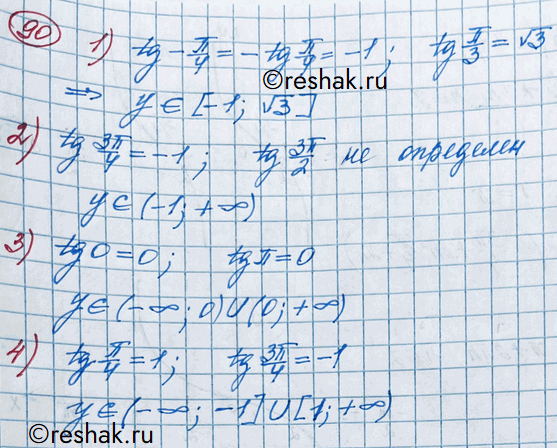 90
1) tg -π/4 = -tg π/4 = -1; tg π/3 = √3
©reshak.ru
⇒ y ∈ [-1; √3]
2) tg 3π/4 = -1; tg 3π/2 не определен
y ∈ (-1; +∞)
3) tg 0 = 0; tg π = 0
y ∈ (-∞; 0) ∪ (0; +∞)
4) tg π/4 = 1; tg 3π/4 = -1
y ∈ (-∞; -1] ∪ [1; +∞)
©reshak.ru